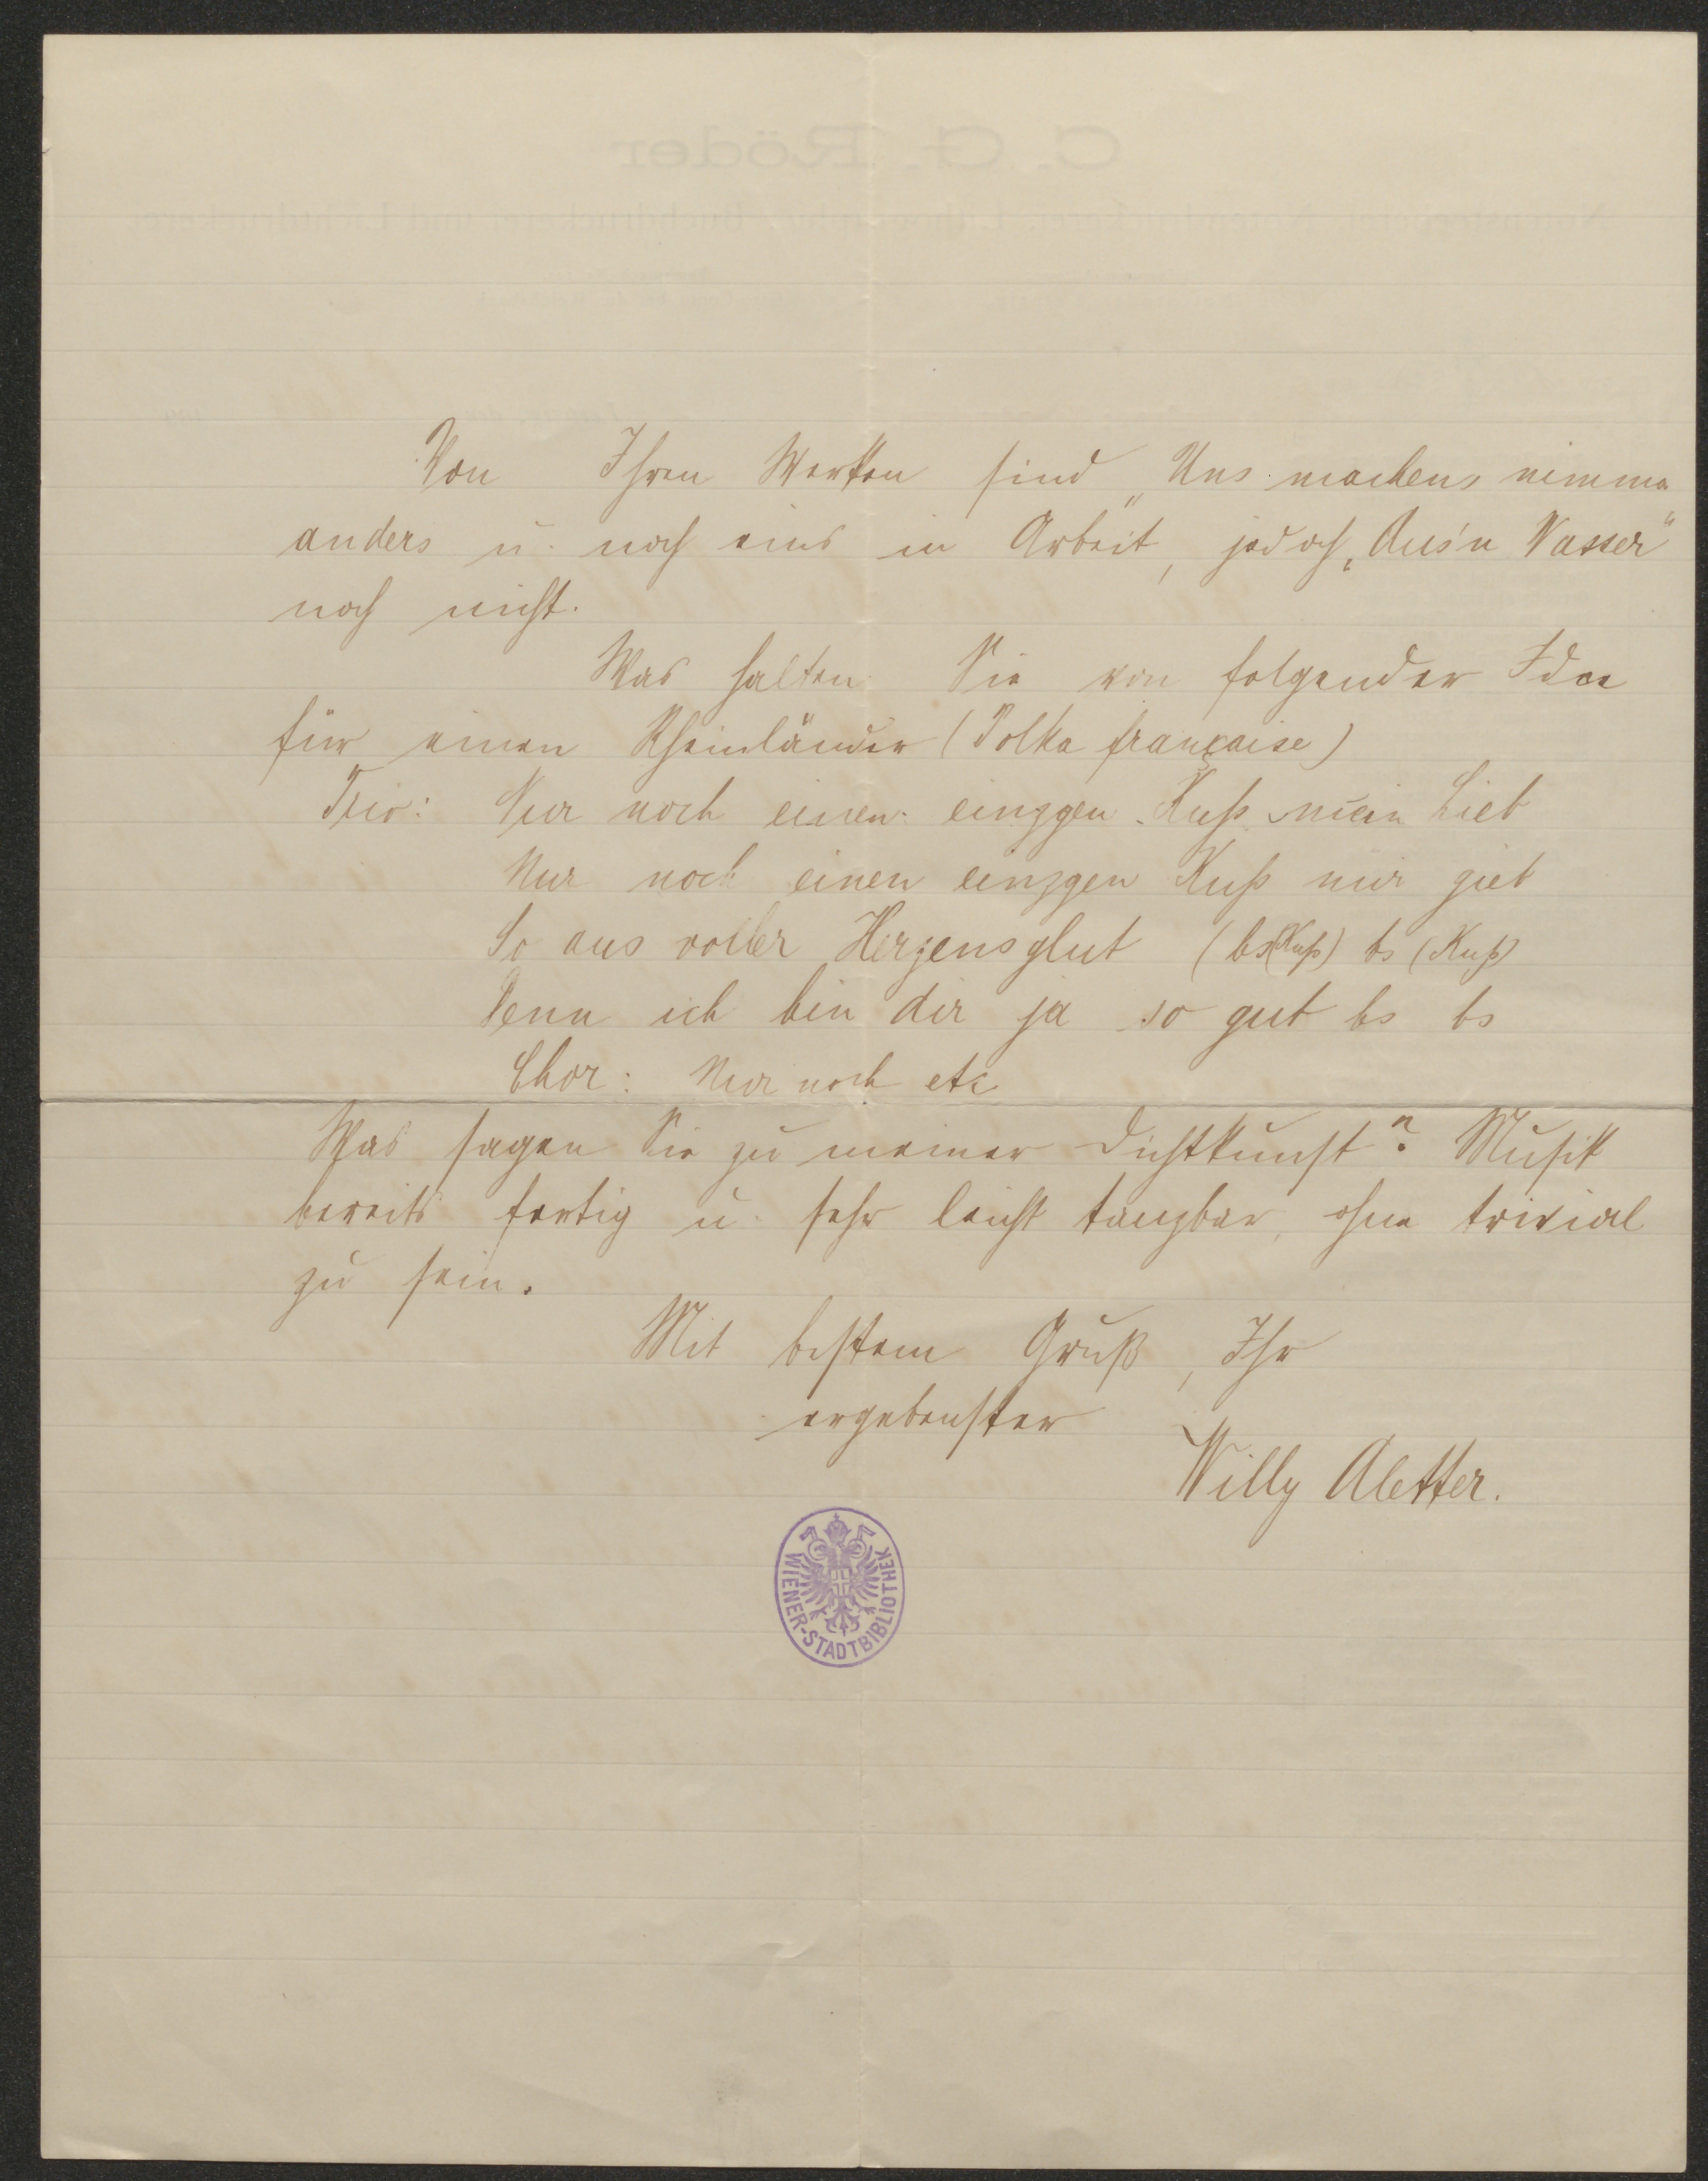 Von Ihren Werken sind „Uns machens nimma
anders u. noch eins in Arbeit, jedoch „Aus'n Wasser"
noch nicht.
Was halten Sie von folgender Idee
für einen Rheinländer (Polka française)
Trio: Nur noch einen einzgen Kuß mein Lieb
Nur noch einen einzgen Kuß mir gieb
So aus voller Herzensglut (bs (Kuß) bs (Kuß)
Denn ich bin dir ja so gut bs bs
Chor: Nur noch etc
Was sagen Sie zu meiner Dichtkunst? Musik
bereits fertig u. sehr leicht tanzbar, ohne trivial
zu sein.
Mit bestem Gruß, Ihr
ergebenster
Willy Aletter.
WIENER-STADTBIBLIOTHEK